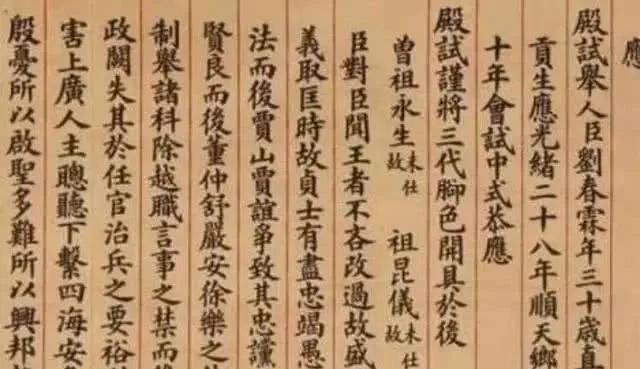 應
殿試舉人臣劉春霖年三十歲直
貢生應光緒二十八年順天鄉
十年會試中式恭應
殿試謹將三代腳色開具於後
曾祖永生未仕故 祖昆儀未仕故
臣對臣聞王者不吝改過故盛
義取匡時故貞士有盡忠竭愚
法而後賈山賈誼爭致其忠讜
賢良而後董仲舒嚴安徐樂之
制舉諸科除越職言事之禁而
政闕失其於任官治兵之要裕
害上廣人主聰聽下繫四海安
殷憂所以啟聖多難所以興邦